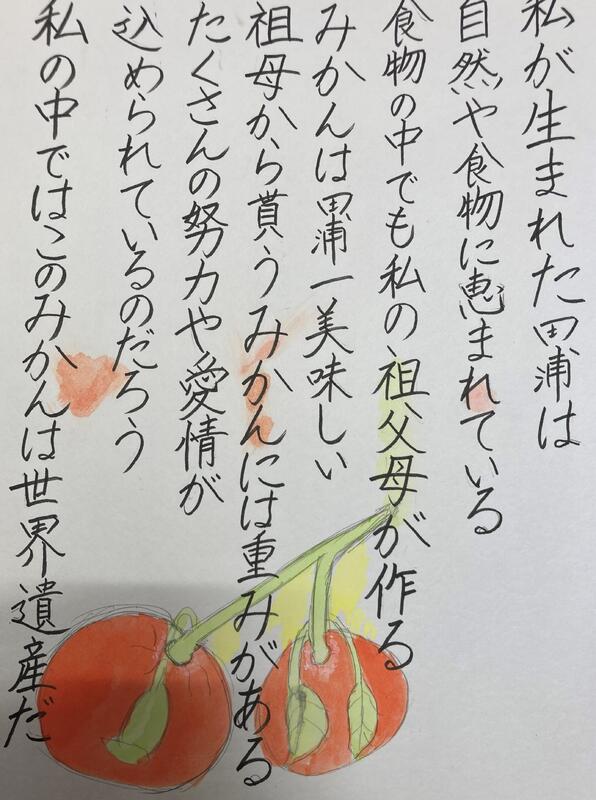 私が生まれた田浦は
自然や食物に恵まれている
食物の中でも私の祖父母が作る
みかんは田浦一美味しい
祖母から貰うみかんには重みがある
たくさんの努力や愛情が
込められているのだろう
私の中ではこのみかんは世界遺産だ